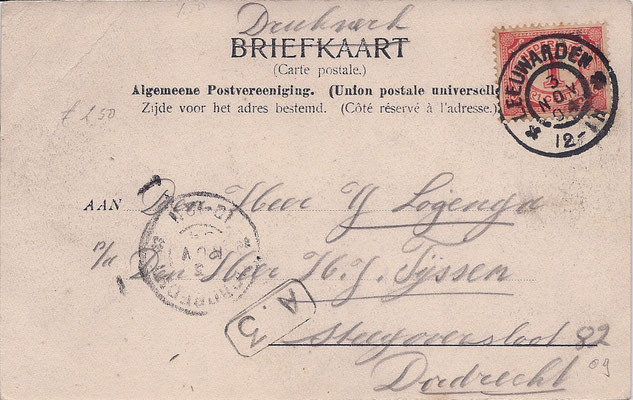 Drukwerk
BRIEFKAART
(Carte postale.)
Algemeene Postvereeniging. (Union postale universelle
Zijde voor het adres bestemd. (Côté réservé à l'adresse.)
LEEUWARDEN
3 NOV
12-1N
£ 1.50
AAN Den Heer Y Logenga
p/a Den Heer H. J. Tyssen
Steegoversloot 82
Dordrecht
DORDRECHT
NOV
A.3